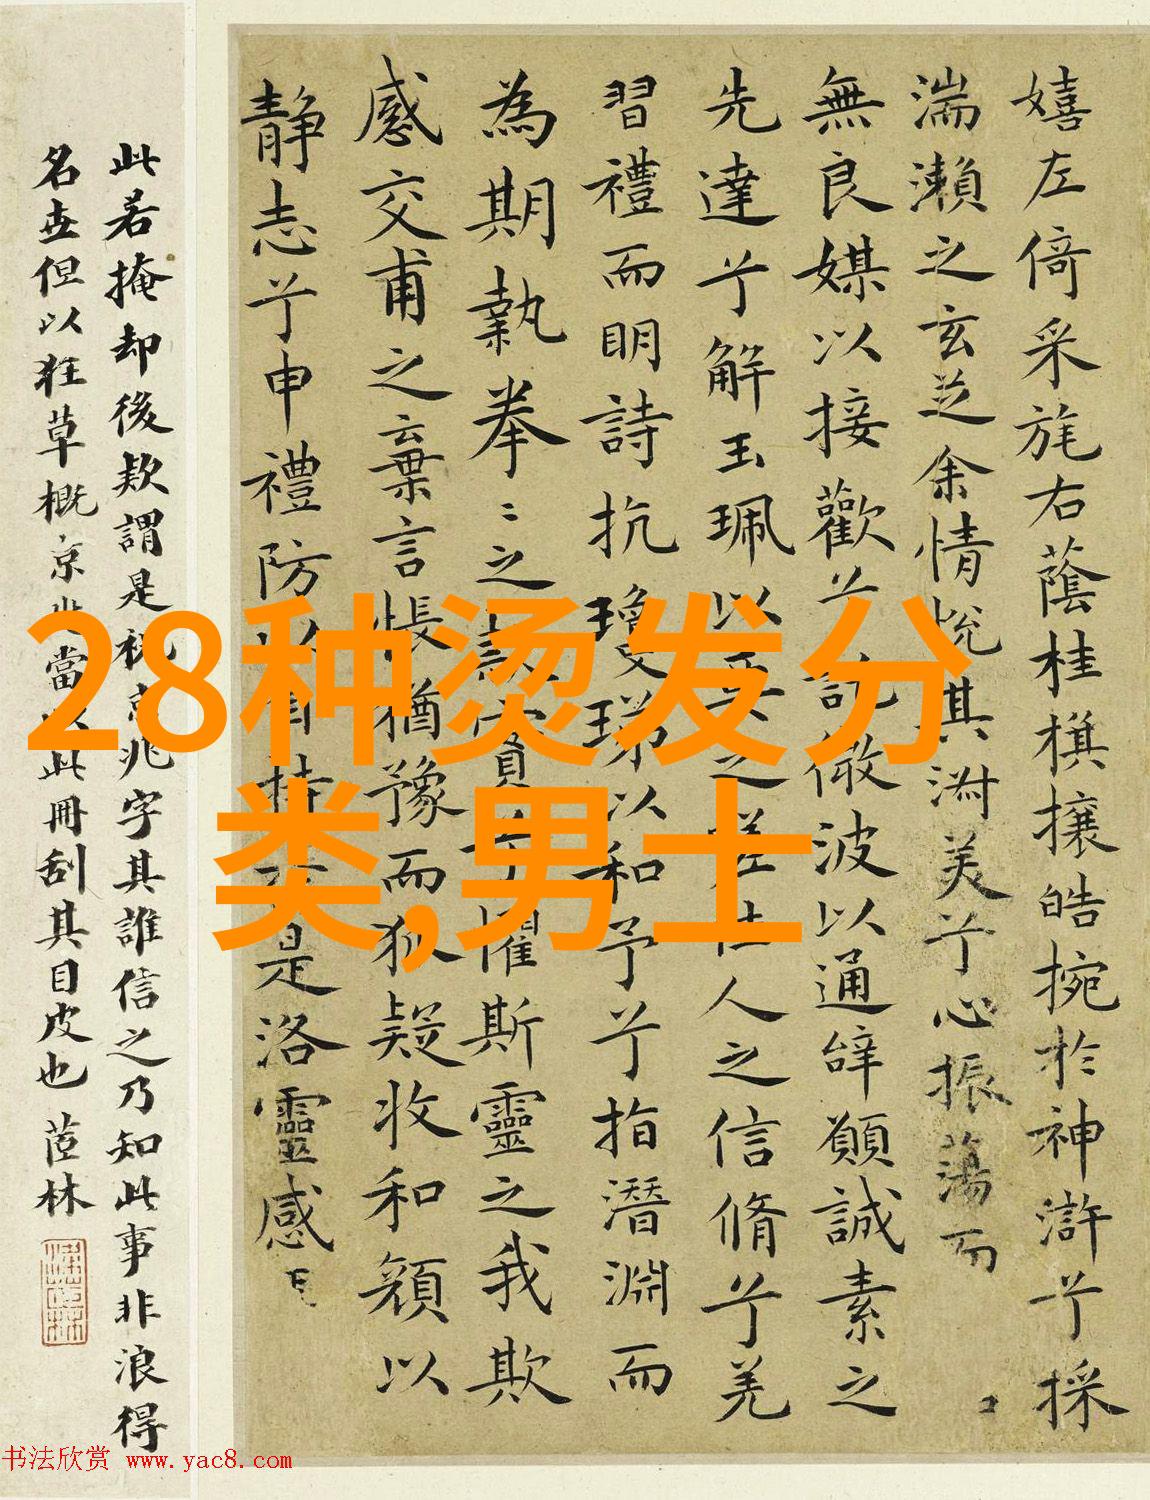 嬉左倚采旄右蔭桂攘皓捥於神滸兮採
湍瀨之玄芝余情悅其淑美兮心振蕩而
無良媒以接歡兮託微波以通辭願誠素之
先達兮解玉珮以要之嗟佳人之信脩兮羌
習禮而明詩抗瓊珶以和予兮指潛淵而
為期執拳〻之款實兮懼斯靈之我欺
感交甫之棄言悵猶豫而狐疑收和顏以
靜志兮申禮防以自持於是洛靈感
此若掩却後款謂是祝京兆字其誰信之乃知此事非浪得
名世但以狂草概京兆當以此冊刮其目皮也 茝林
28种烫发分
类,男士
书法欣赏 www.yac8.com